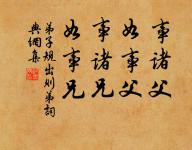 事諸父
如事父
事諸兄
如事兄
弟子規出則弟詞
典網集